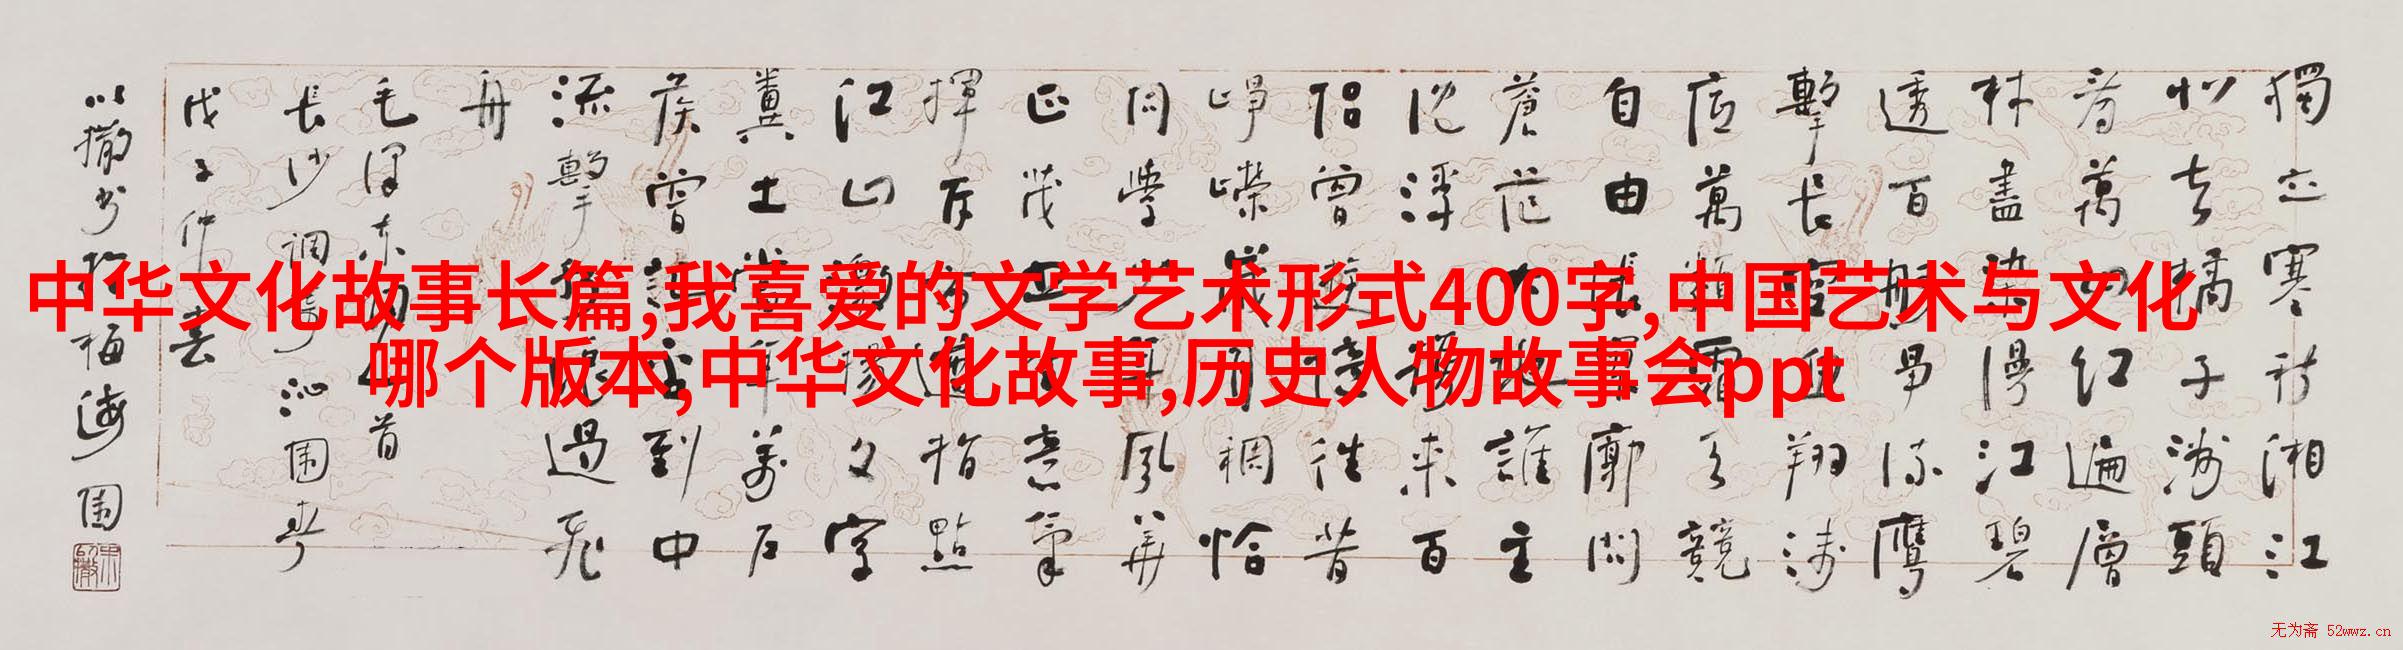 中华文化故事长篇,我喜爱的文学艺术形式400字,中国艺术与文化
哪个版本,中华文化故事,历史人物故事会ppt
獨立寒秋湘江
北去橘子洲頭
看萬山红遍層
林盡染漫江碧
透百舸爭流鷹
擊長空魚翔淺
底萬類霜天競
自由悵寥廓問
蒼茫大地誰主
沈浮攜来百
侣曾遊憶往昔
崢嶸歲月稠恰
同學少年風華
正茂書生意氣
揮斥方遒指點
江山激揚文字
糞土當年萬户
侯曾記否到中
流擊水浪遏飛
舟
毛澤东
首
長沙 調寄沁園春
戊子仲
以撒書於梅海園
无为斋 52wwz.cn